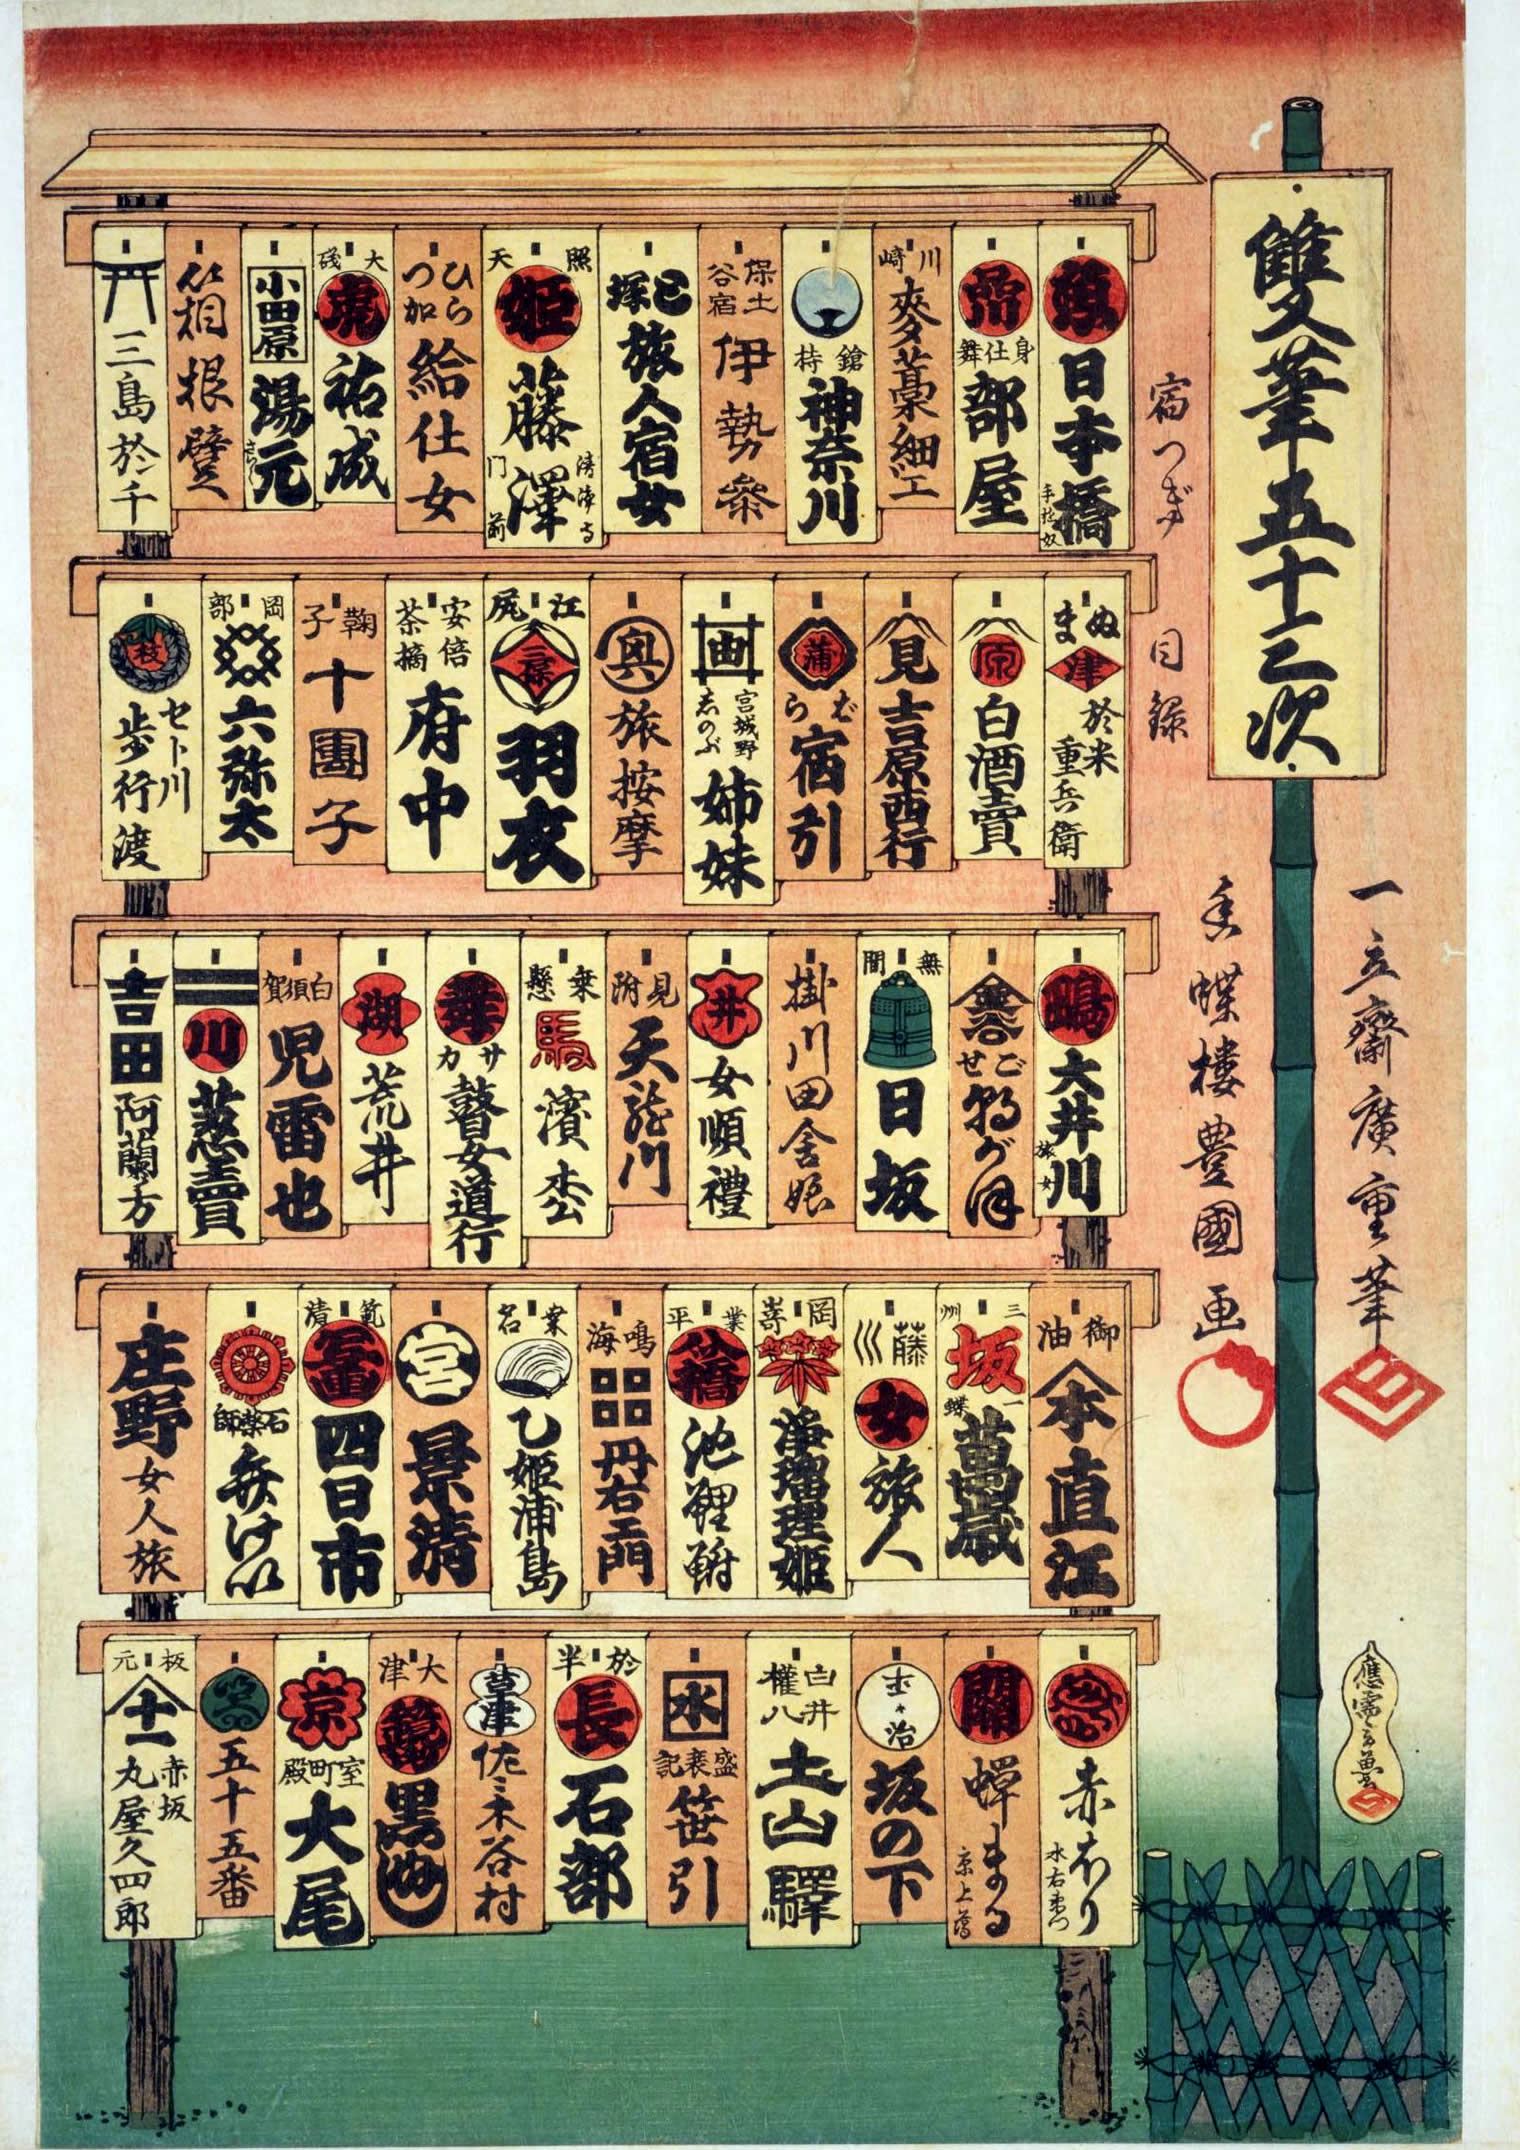 雙筆五十三次
宿つぎ
目録
一立齋廣重筆
香蝶楼豊國画
日本橋
身仕舞
部屋
川崎
麦藁細工
鎗持
神奈川
保土谷宿
伊勢参
旅人宿女
照天
姫
藤澤
清浄寺
門前
ひらつか
給仕女
大磯
虎
祐成
小田原
湯元
箱根
三島於千
ぬま
津
於米
重兵衛
原
白酒賣
見
吉原西行
蒲
宿引
宮城野
しのぶ
姉妹
奥
旅按摩
江尻
三保
羽衣
安倍
茶摘
府中
鞠子
十團子
岡部
六弥太
枝
セト川
歩行渡
嶋
大井川
旅女
金谷
無間
日坂
掛川田舎娘
井
女順禮
見附
天龍川
乗懸
馬
濱松
舞
サカ
瞽女道行
湖
荒井
白須賀
児雷也
二川
吉田
阿蘭方
御油
本
直江
三州
坂
一蝶
萬歳
藤川
女
旅人
岡嵜
浄瑠理姫
業平
八橋
池鯉鮒
鳴海
丹右エ門
桑名
乙姫浦島
宮
景清
四日市
石薬師
庄野
女人旅
赤ほり
水右衛門
關
京上臈
坂の下
白井
權八
土山驛
水
盛衰記
笹引
於半
長
石部
草津
佐々木谷村
大津
京
室町殿
大尾
五十五番
板元
赤坂
丸屋久四郎